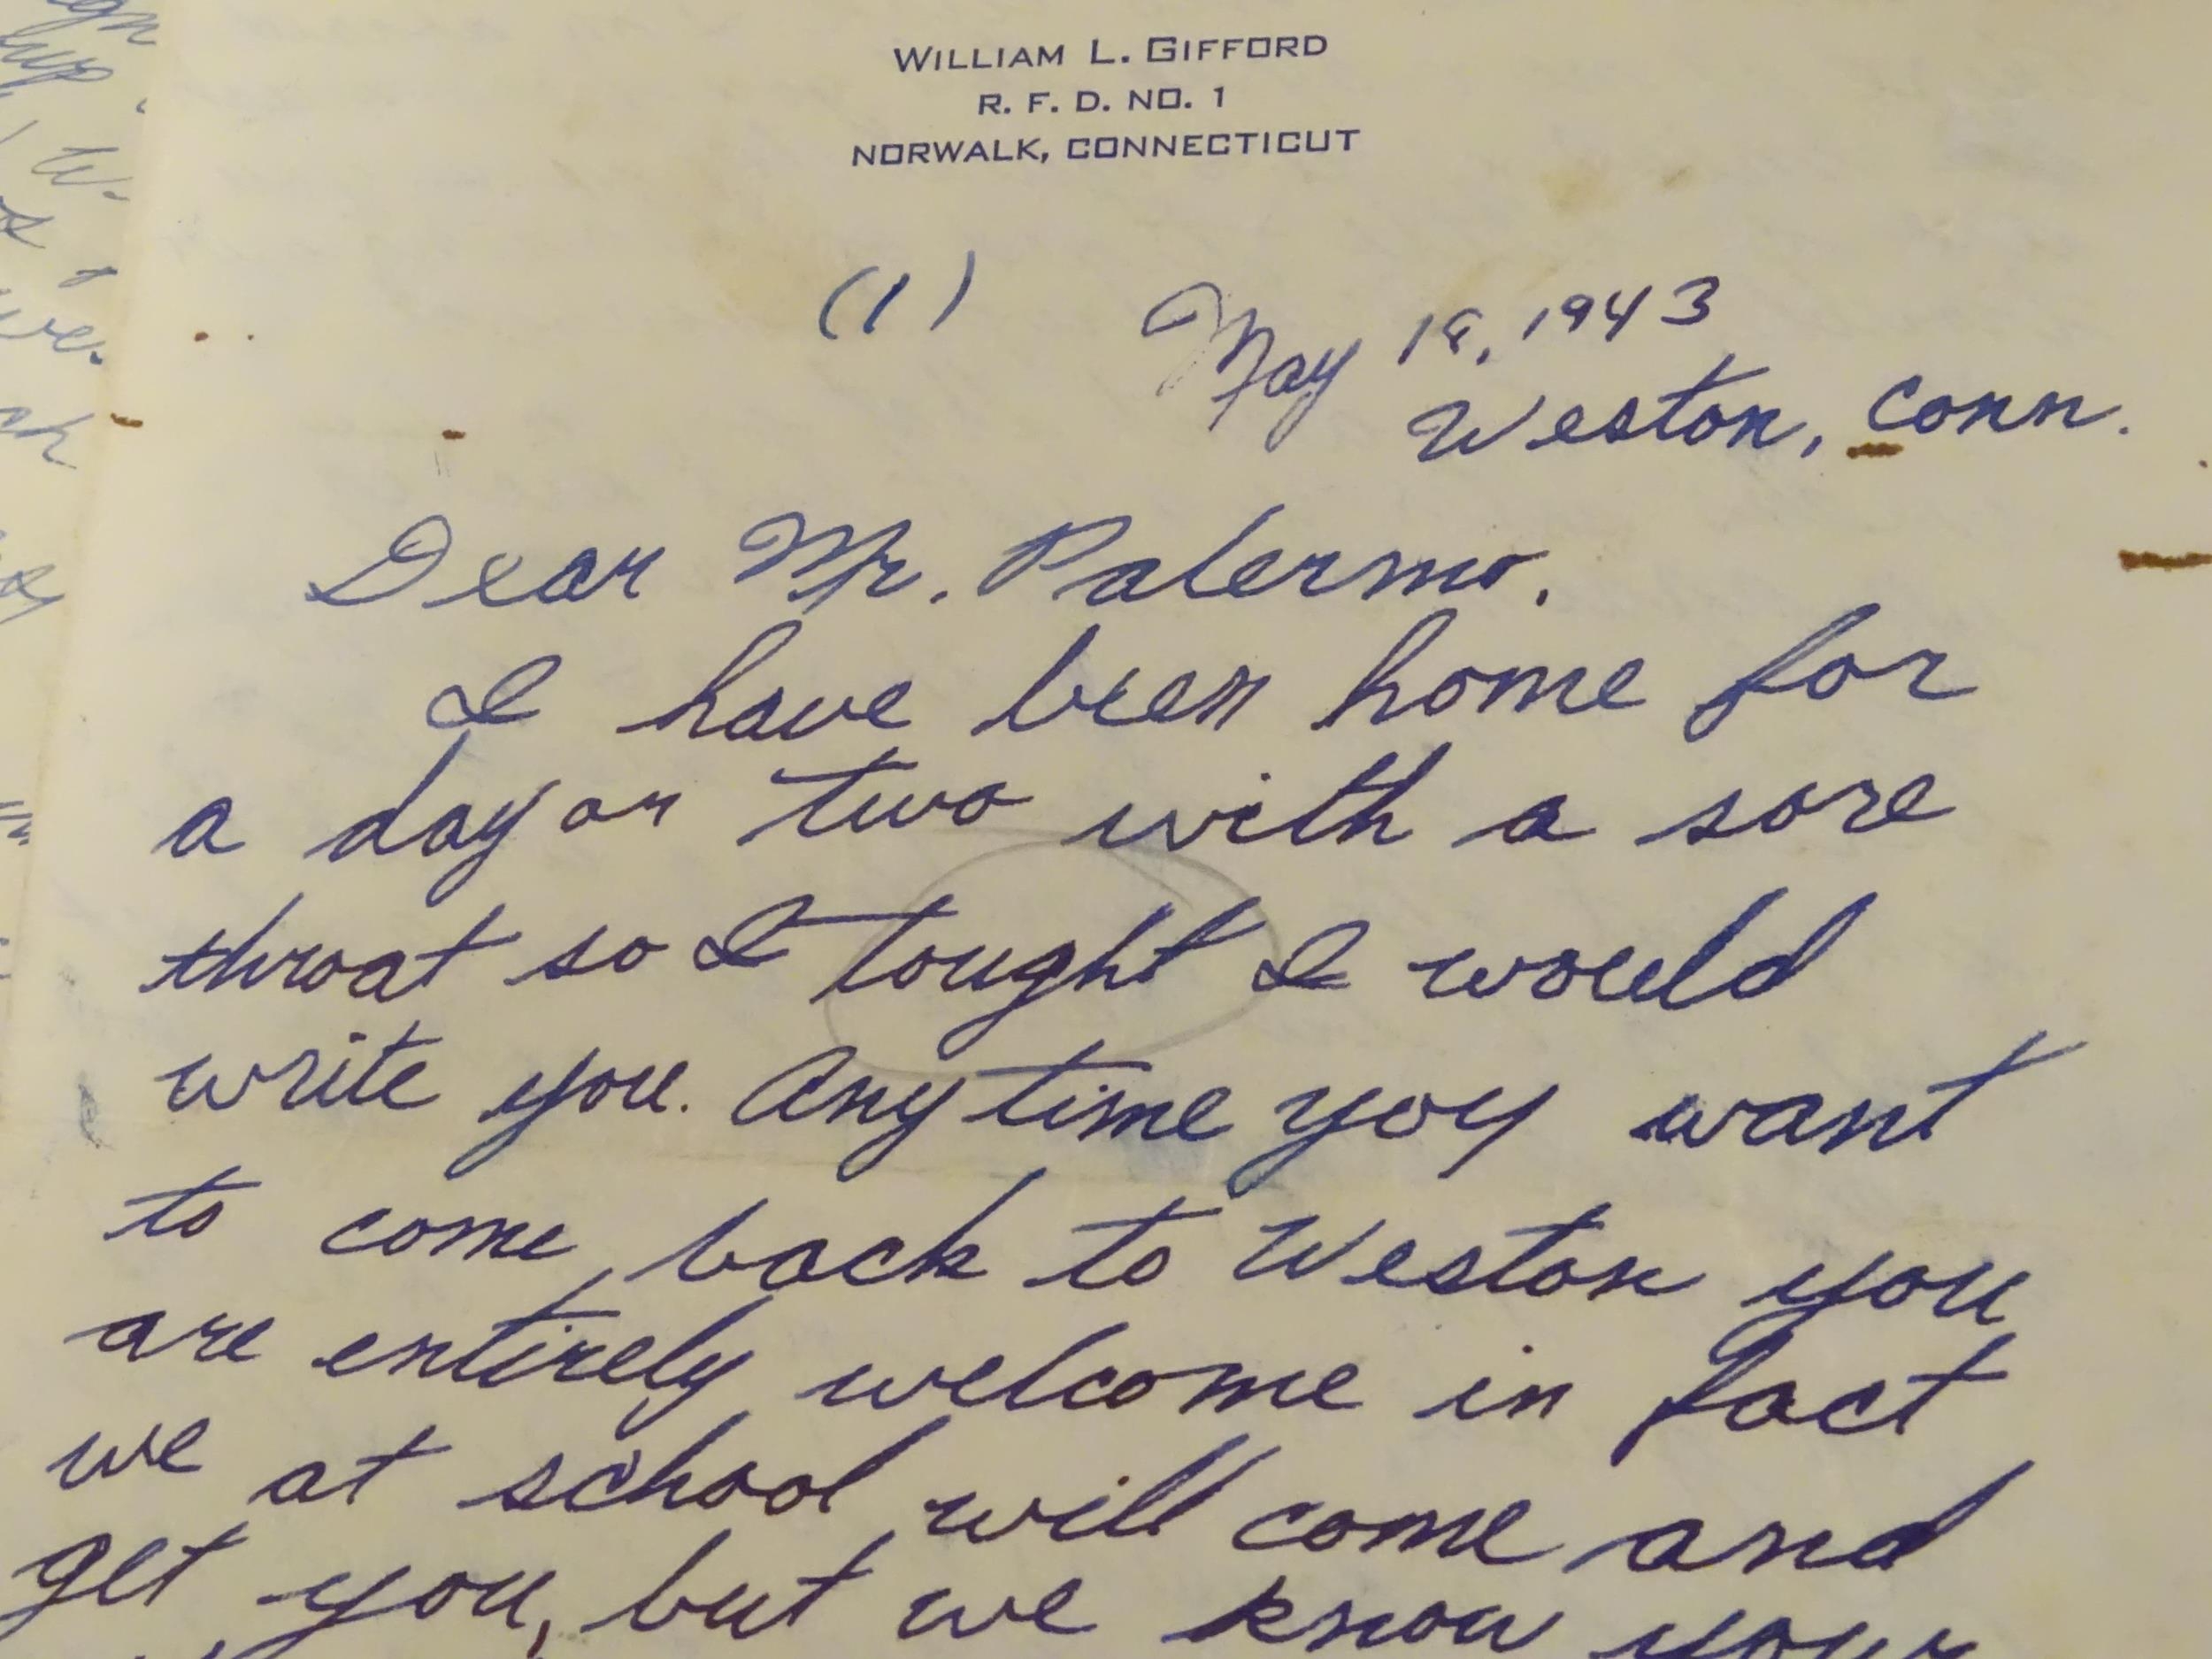 WILLIAM L. GIFFORD
R. F. D. NO. 1
NORWALK, CONNECTICUT
(1)
May 18, 1943
Weston, Conn.
Dear Mr. Palermo.
I have been home for
a day or two with a sore
throat so I tought I would
write you. Any time you want
to come back to Weston you
are entirely welcome in fact
we at school will come and
get you, but we know your